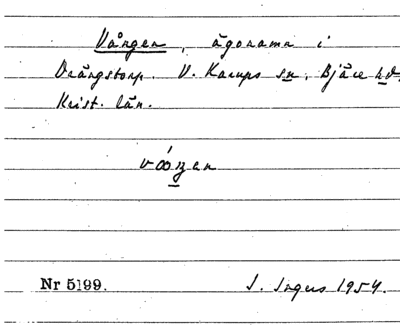 Vången, ägonamn i
Drängstorp. V. Karups sn, Bjäre hd,
Krist. län.
Nr 5199. I. Ingers 1954.